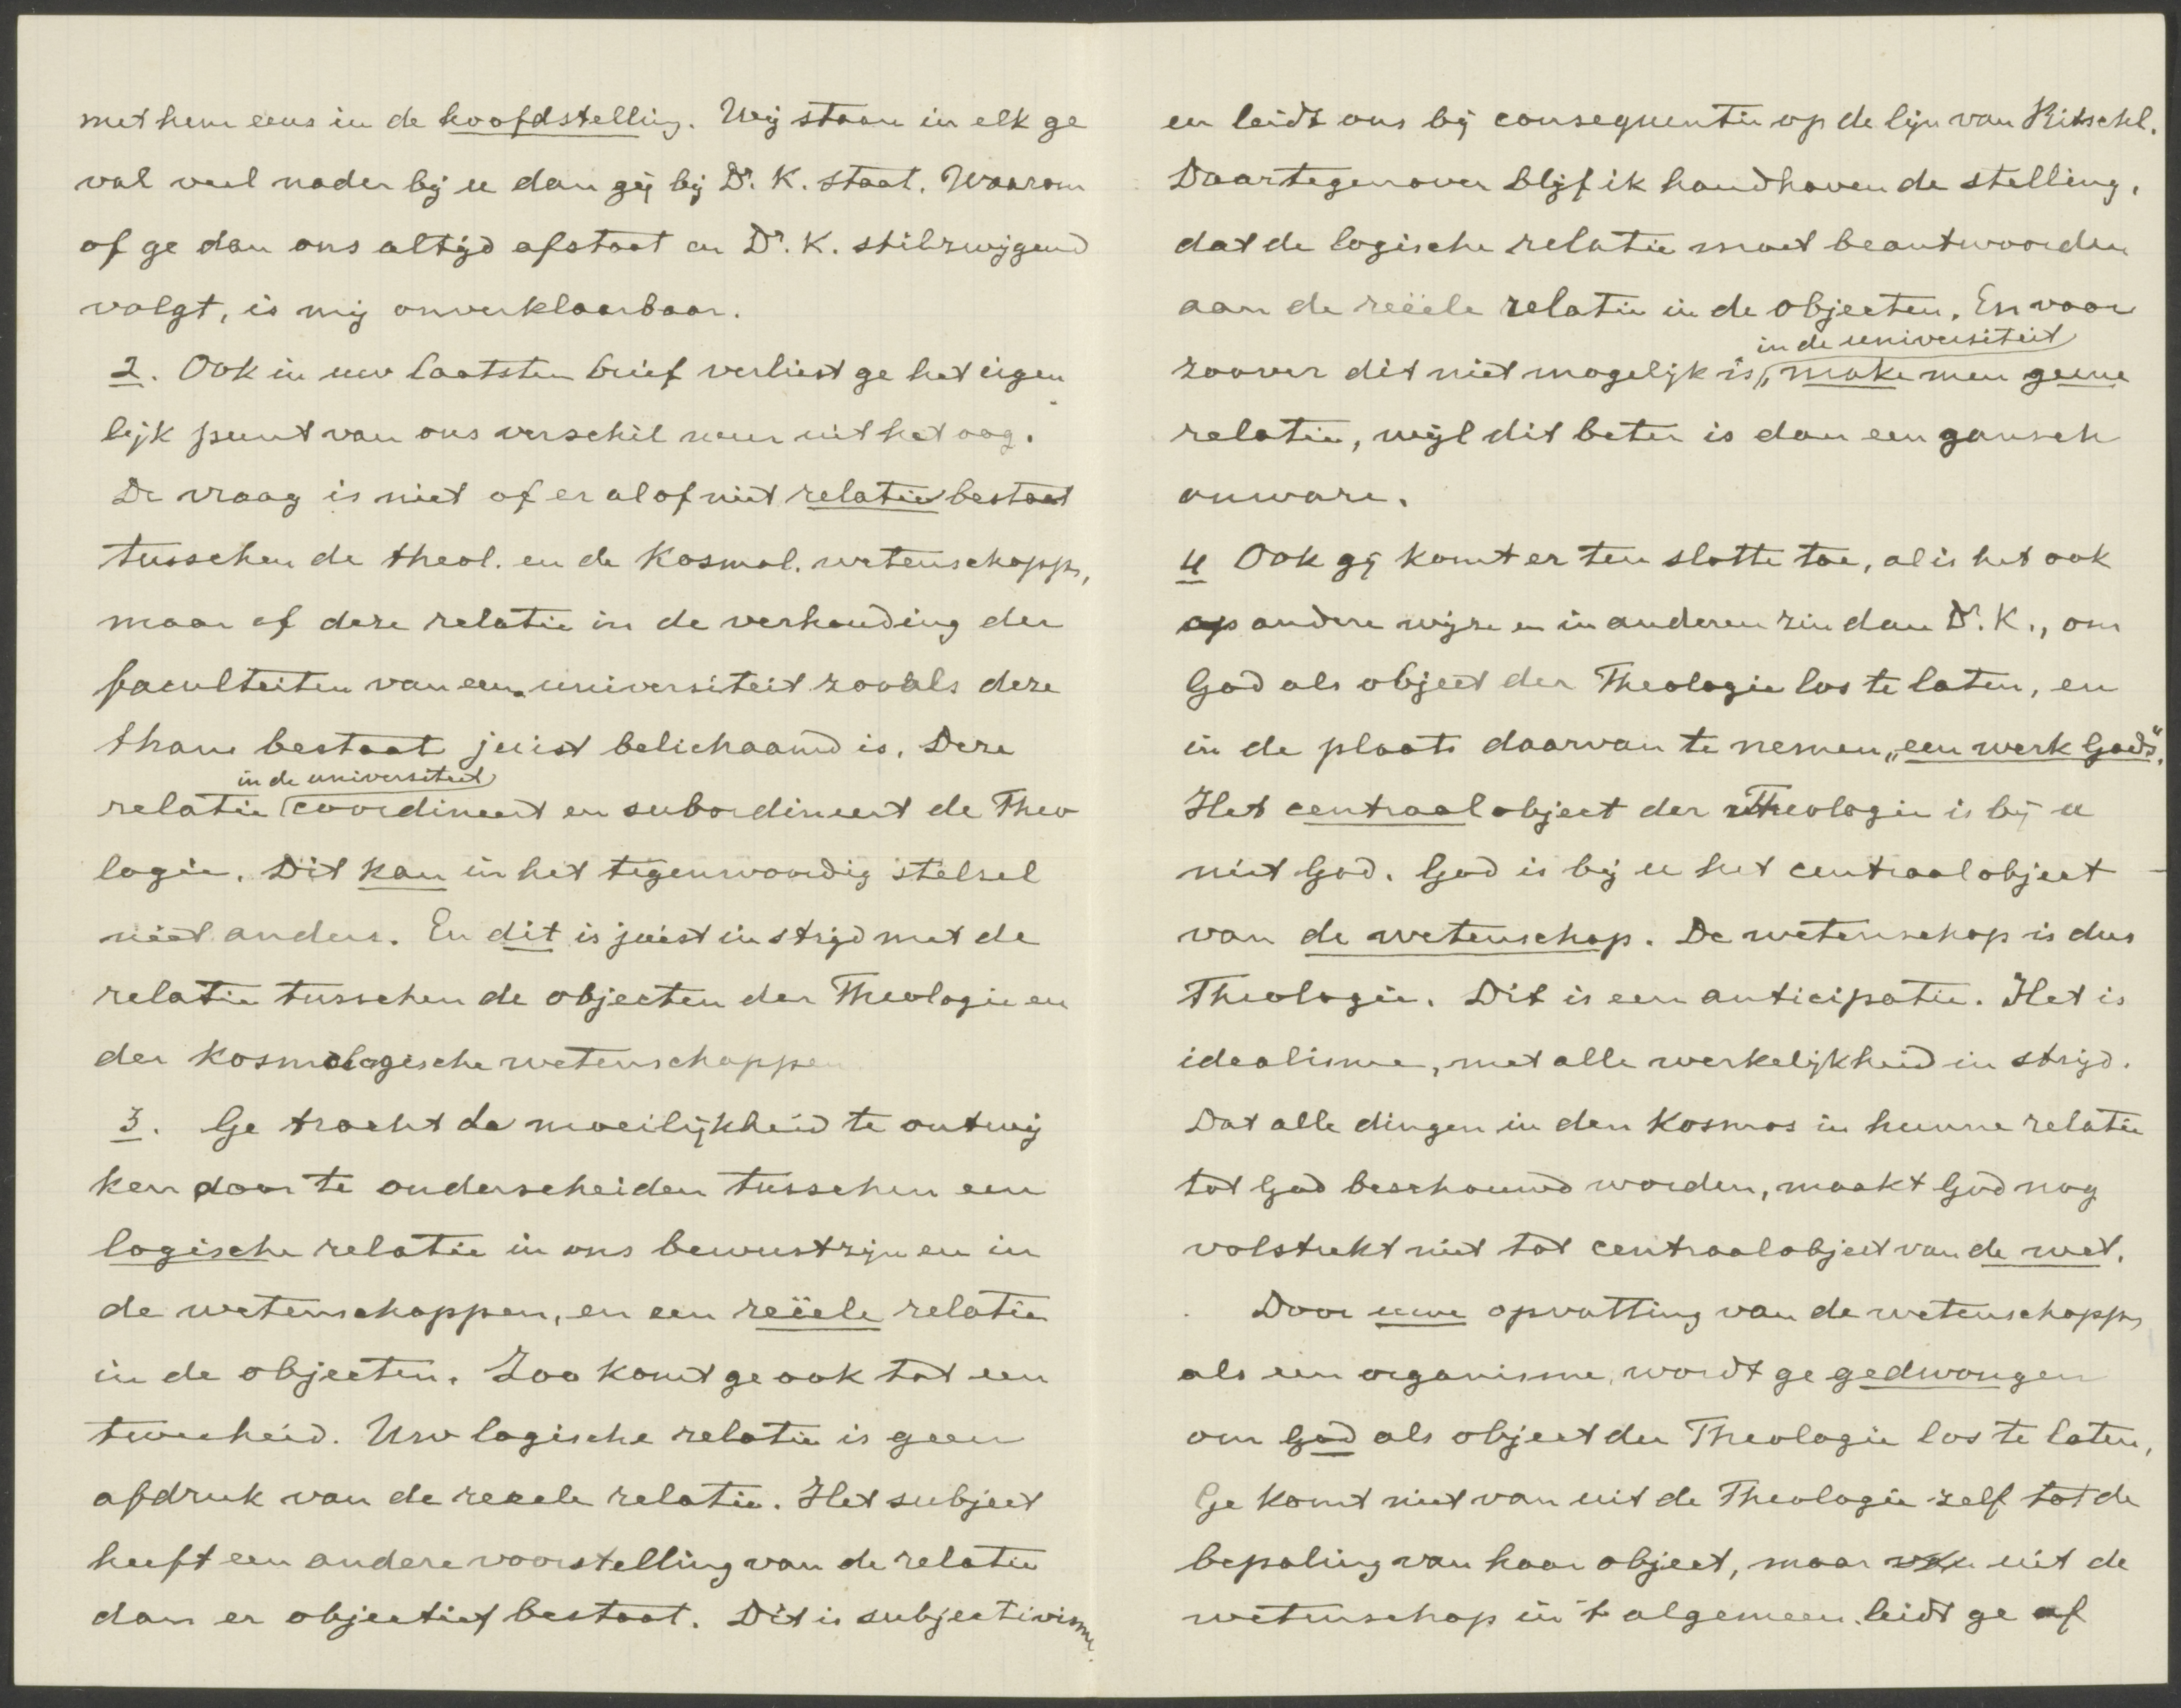 met hem eens in de hoofdstelling. Wij staan in elk ge
val veel nader bij u dan gij bij Dr. K. staat. Waarom
of ge dan ons altijd afstoot en Dr. K. stilzwijgend
volgt, is mij onverklaarbaar.
2. Ook in uw laatsten brief verliest ge het eigen
lijk punt van ons verschil weer uit het oog.
De vraag is niet of er al of niet relatie bestaat
tusschen de theol. en de Kosmol. wetenschapp,
maar of deze relatie in de verhouding der
faculteiten van een universiteit zooals deze
thans bestaat juist belichaamd is. Deze
in de universiteit
relatie coordineert en subordineert de Theo
logie. Dit kan in het tegenwoordig stelsel
niet anders. En dit is juist in strijd met de
relatie tusschen de objecten der Theologie en
der Kosmologische wetenschappen
3. Ge tracht de moeilijkheid te ontwij
ken door te onderscheiden tusschen een
logische relatie in ons bewustzijn en in
de wetenschappen, en een reëele relatie
in de objecten. Zoo komt ge ook tot een
tweeheid. Uw logische relatie is geen
afdruk van de reeele relatie. Het subject
heeft een andere voorstelling van de relatie
dan er objectief bestaat. Dit is subjectivisme.
en leidt ons bij consequentie op de lijn van Ritschl.
Daartegenover blijf ik handhaven de stelling,
dat de logische relatie moet beantwoorden
aan de reëele relatie in de objecten. En voor
in de universiteit
zoover dit niet mogelijk is, make men geene
relatie, wijl dit beter is dan een gansch
onware.
4 Ook gij komt er ten slotte toe, al is het ook
op andere wijze en in anderen zin dan Dr. K., om
God als object der Theologie los te laten, en
in de plaats daarvan te nemen „een werk Gods".
Het centraal object der Theologie is bij u
niet God. God is bij u het centraal object
van de wetenschap. De wetenschap is dus
Theologie. Dit is een anticipatie. Het is
idealisme, met alle werkelijkheid in strijd.
Dat alle dingen in den Kosmos in hunne relatie
tot God beschouwd worden, maakt God nog
volstrekt niet tot centraal object van de wet.
Door uwe opvatting van de wetenschapp
als een organisme, wordt ge gedwongen
om God als object der Theologie los te laten,
Ge komt niet van uit de Theologie zelf tot de
bepaling van haar object, maar van uit de
wetenschap in 't algemeen leidt ge af